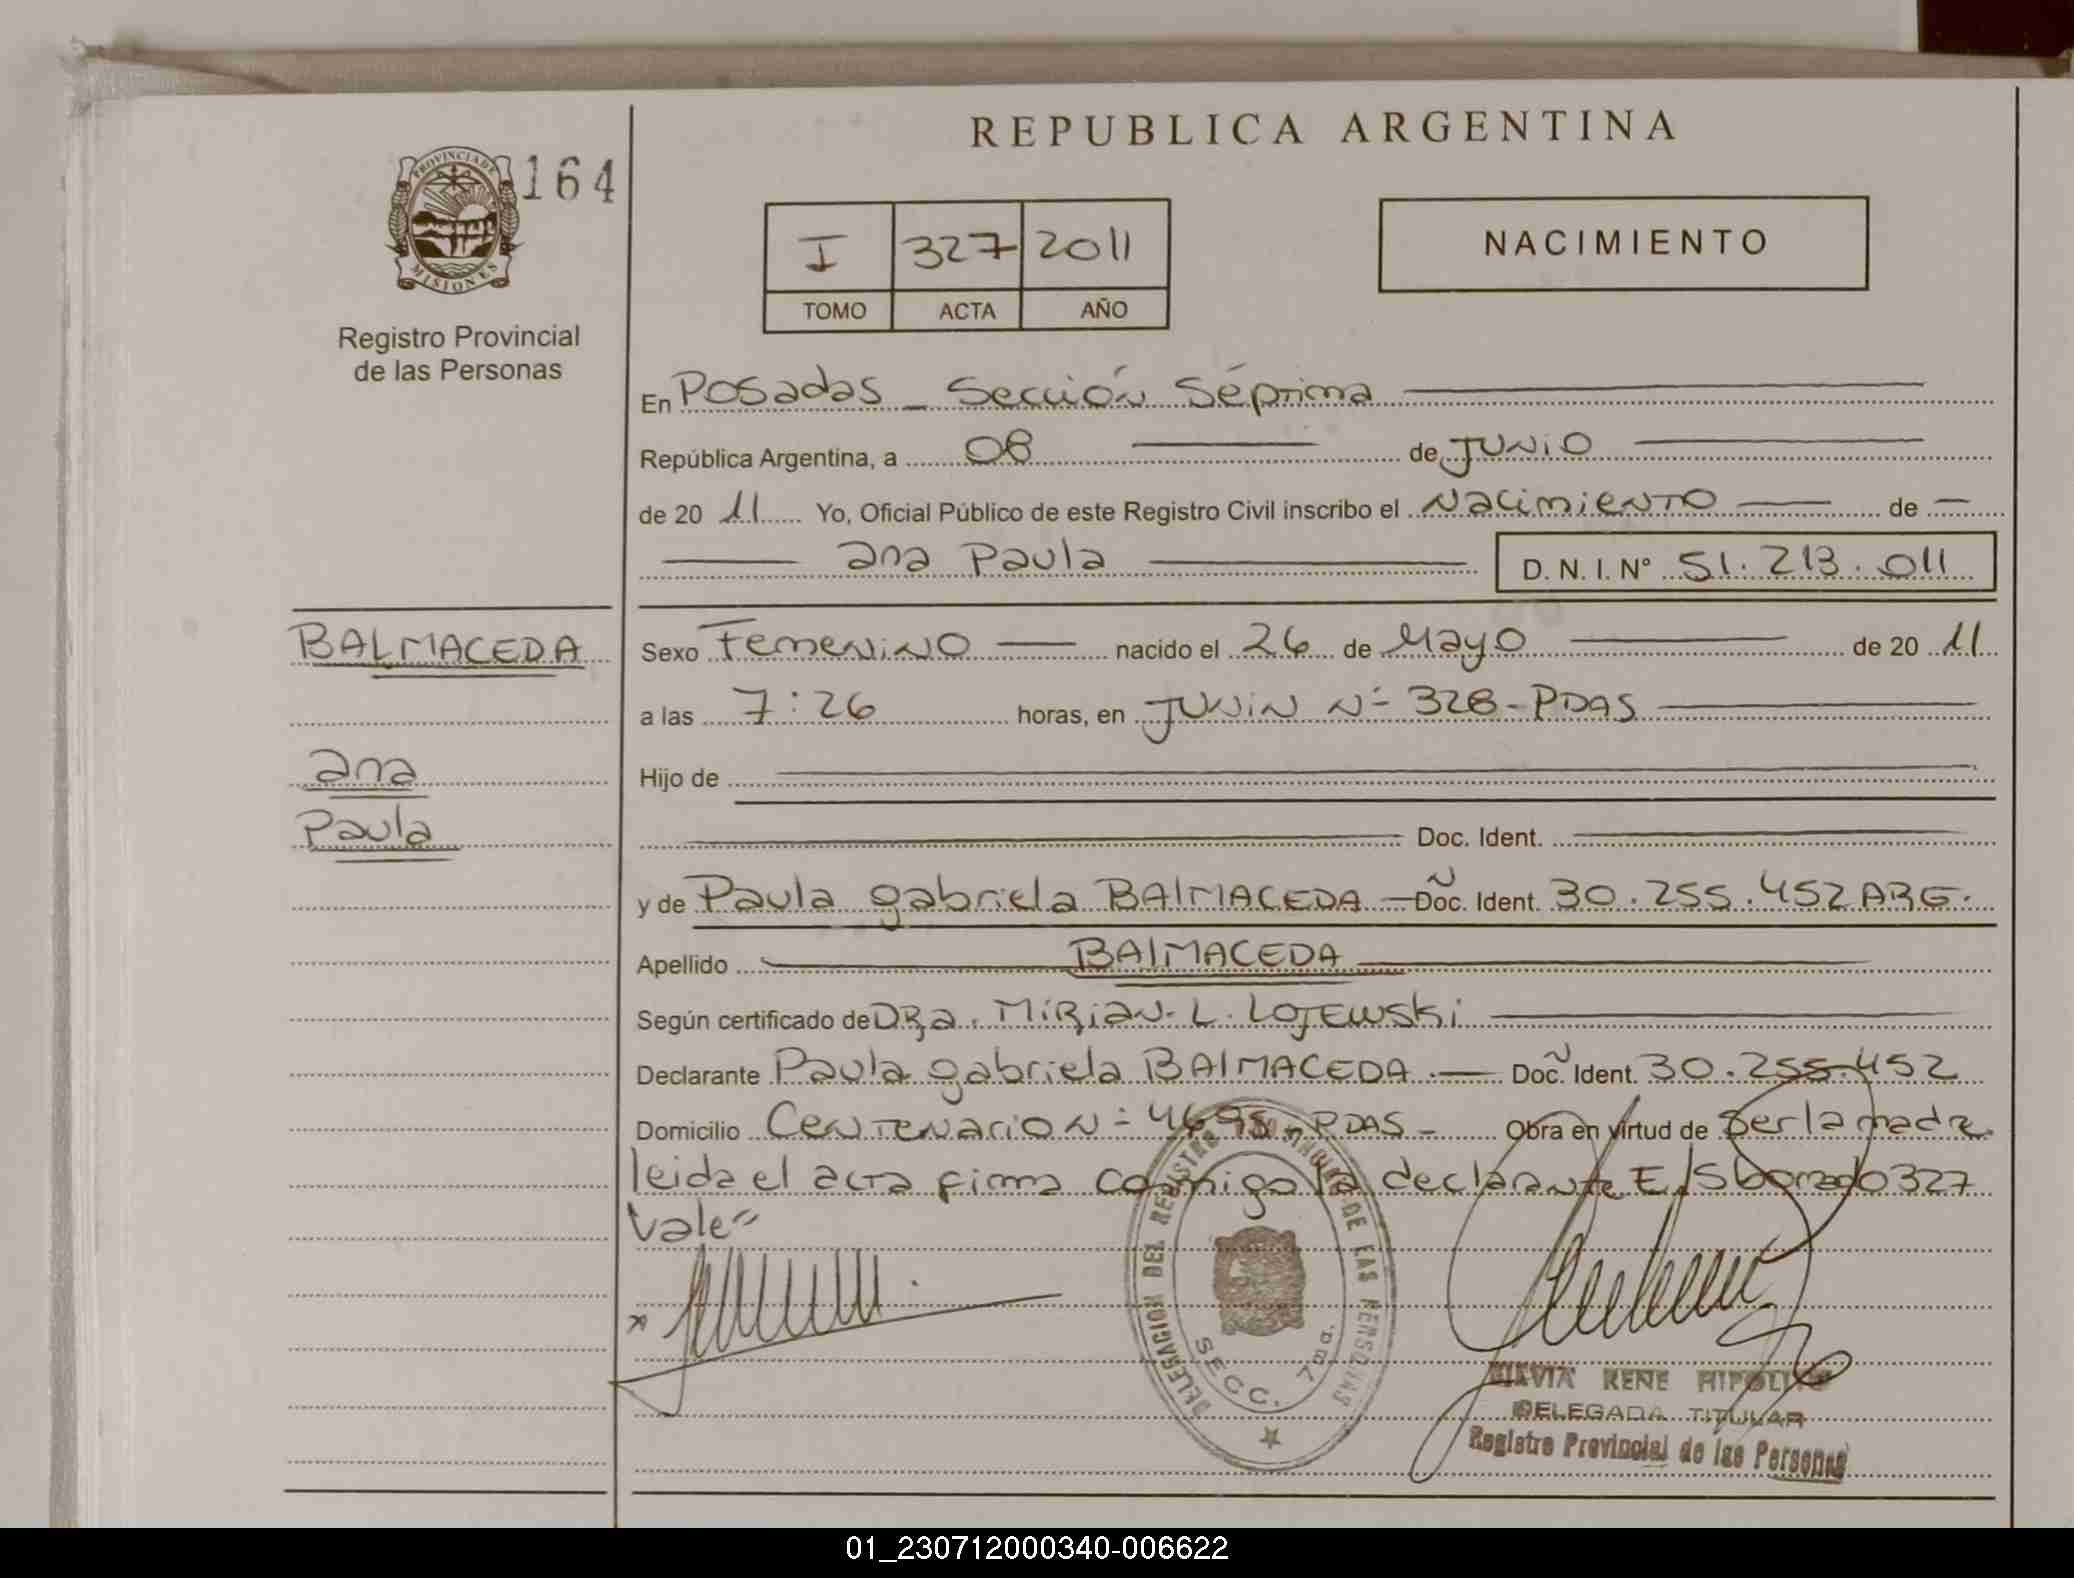 REPUBLICA ARGENTINA
PROVINCIA DE
MISIONES
164
Registro Provincial
de las Personas
I 327 2011
TOMO ACTA AÑO
NACIMIENTO
En Posadas _ Sección Séptima
República Argentina, a 08 de Junio
de 20 11 Yo, Oficial Público de este Registro Civil inscribo el Nacimiento de
ana Paula D. N. I. N° 51.213.011
BALMACEDA
ana
Paula
Sexo Femenino nacido el 26 de Mayo de 20 11
a las 7:26 horas, en Junin N- 328-PDAS
Hijo de
Doc. Ident.
y de Paula gabriela BALMACEDA Doc. Ident. 30.255.452 ARG.
Apellido BALMACEDA
Según certificado de DRa. MiRian. L. LOJEWSki
Declarante Paula gabriela BALMACEDA . Doc. Ident. 30.255.452
Domicilio Centenario N- 4698 - PDAS - Obra en virtud de ser la madre
leida el acta firma conmigo la declarante E/S borrado 327
Vale"
DELEGACION DEL REGISTRO PROVINCIAL DE LAS PERSONAS
SECC. 7ma.
RENE HIPOLITO
DELEGADA TITULAR
Registro Provincial de las Personas
01_230712000340-006622